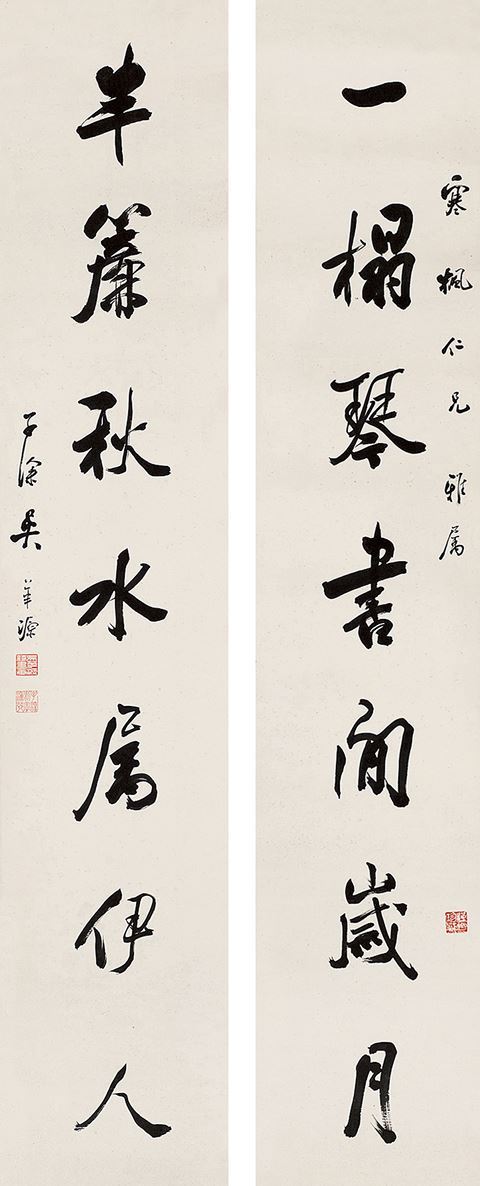 寒楓仁兄雅属
一榻琴書閒歲月
半簾秋水属伊人
子深吳華源